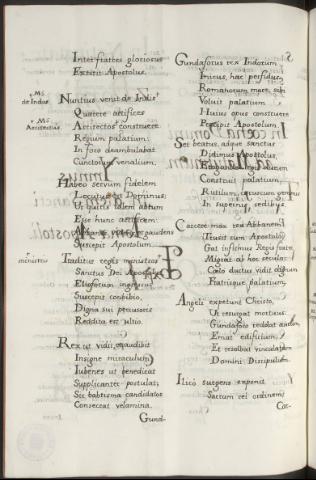 Inter fratres gloriosus
Extitit Apostolus.
Nuntius venit de Indis
Quærere artifices
Architectos construere
Regium palatium:
In foro deambulabat
Cunctorum venalium.
Habeo servum fidelem
Locutus est Dominus:
Ut quæris talem aptum
Esse hunc artificem:
Abbanes videns et gaudens
Suscepit Apostolum
Traditus regis ministris
Sanctus Dei Apostolus
Susceptis convivio,
Digna sui percussoris
Reddita est ultio.
Rex ut vidit, et audivit
Insigne miraculum,
Iubens ut benedicat
Supplicanter postulat,
Sic baptisma candidatos
Consecrat velamina.
Gund-
M.S.
de Indus
M.S.
Architectus
ministro
Gundaforus rex Indorum
Impius, hac perfidus,
Romanorum more, sibi
Voluit palatium
Huius opus construere
Precipit Apostolum.
Sic beatus, atque sanctus
Didimus Apostolus,
Construit palatium,
Rutilum,
In supernis sedibus
Carcere mox rex Abbanem
Trusit cum Apostolo,
Gat insignus Regis frater
Migrat ab hoc seculo:
Cœlo ductus, vidit dignum
Fratrisque palatium,
Angeli expetunt Christo,
Ut resurgat mortuus:
Gundaforo reddat aurum,
Emat edificium,
Et resolvat vinculatum
Domini Discipulum.
Ilico surgens expendit
Factum rei ordinem
Car-